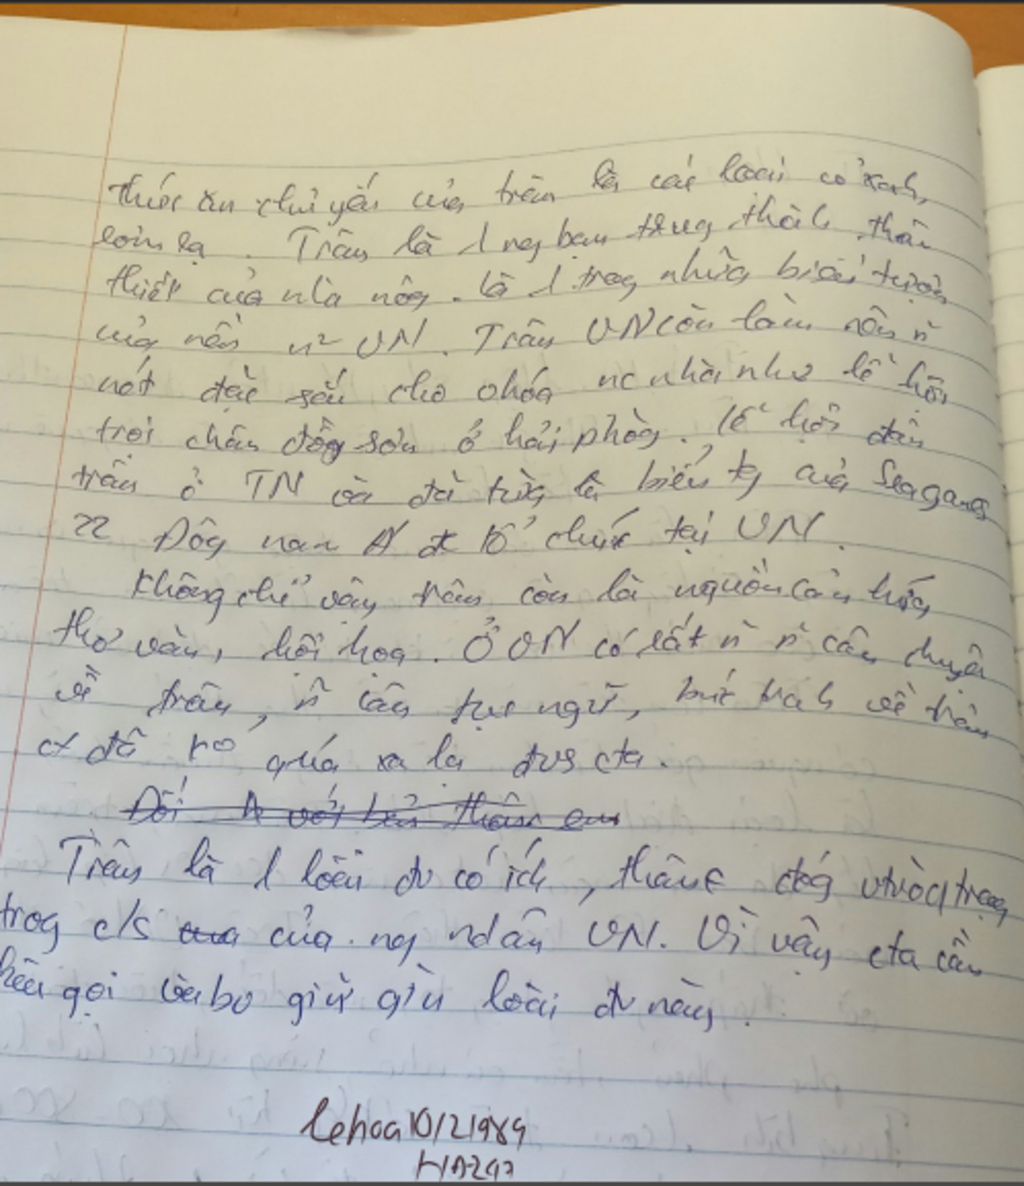 thức ăn chủ yếu của trâu là các loại cỏ xanh,
rơm rạ. Trâu là 1 ng bạn trug thàh thân
thiết của nhà nôg. là 1 trog nhữg biểu tượg
của nền n² VN. Trâu VN còn làm nên n̄
nét đặc sắc cho nc nhà như lễ hội
trọi châu đồ sơn ở hải phòg. lễ hội đâm
trâu ở TN và đã từg là biểu tg của Seagames
22 Đôg nam Á đc tổ chức tại VN.
Không chỉ vậy trâu còn là nguồn cảm hứg
thơ văn, hội họa. Ở VN có rất n̄ n̄ câu chuyện
về trâu, n̄ câu tục ngữ, bức trah về trâu
đã ko quá xa lạ cta.
Đối với bản thân em
Trâu là 1 loài đv có ích, đóg vtrò qtrọg
trog c/s của ng ndân VN. Vì vậy cta cần
gọi và bv giữ gìn loài đv này.
lehoa10/21984